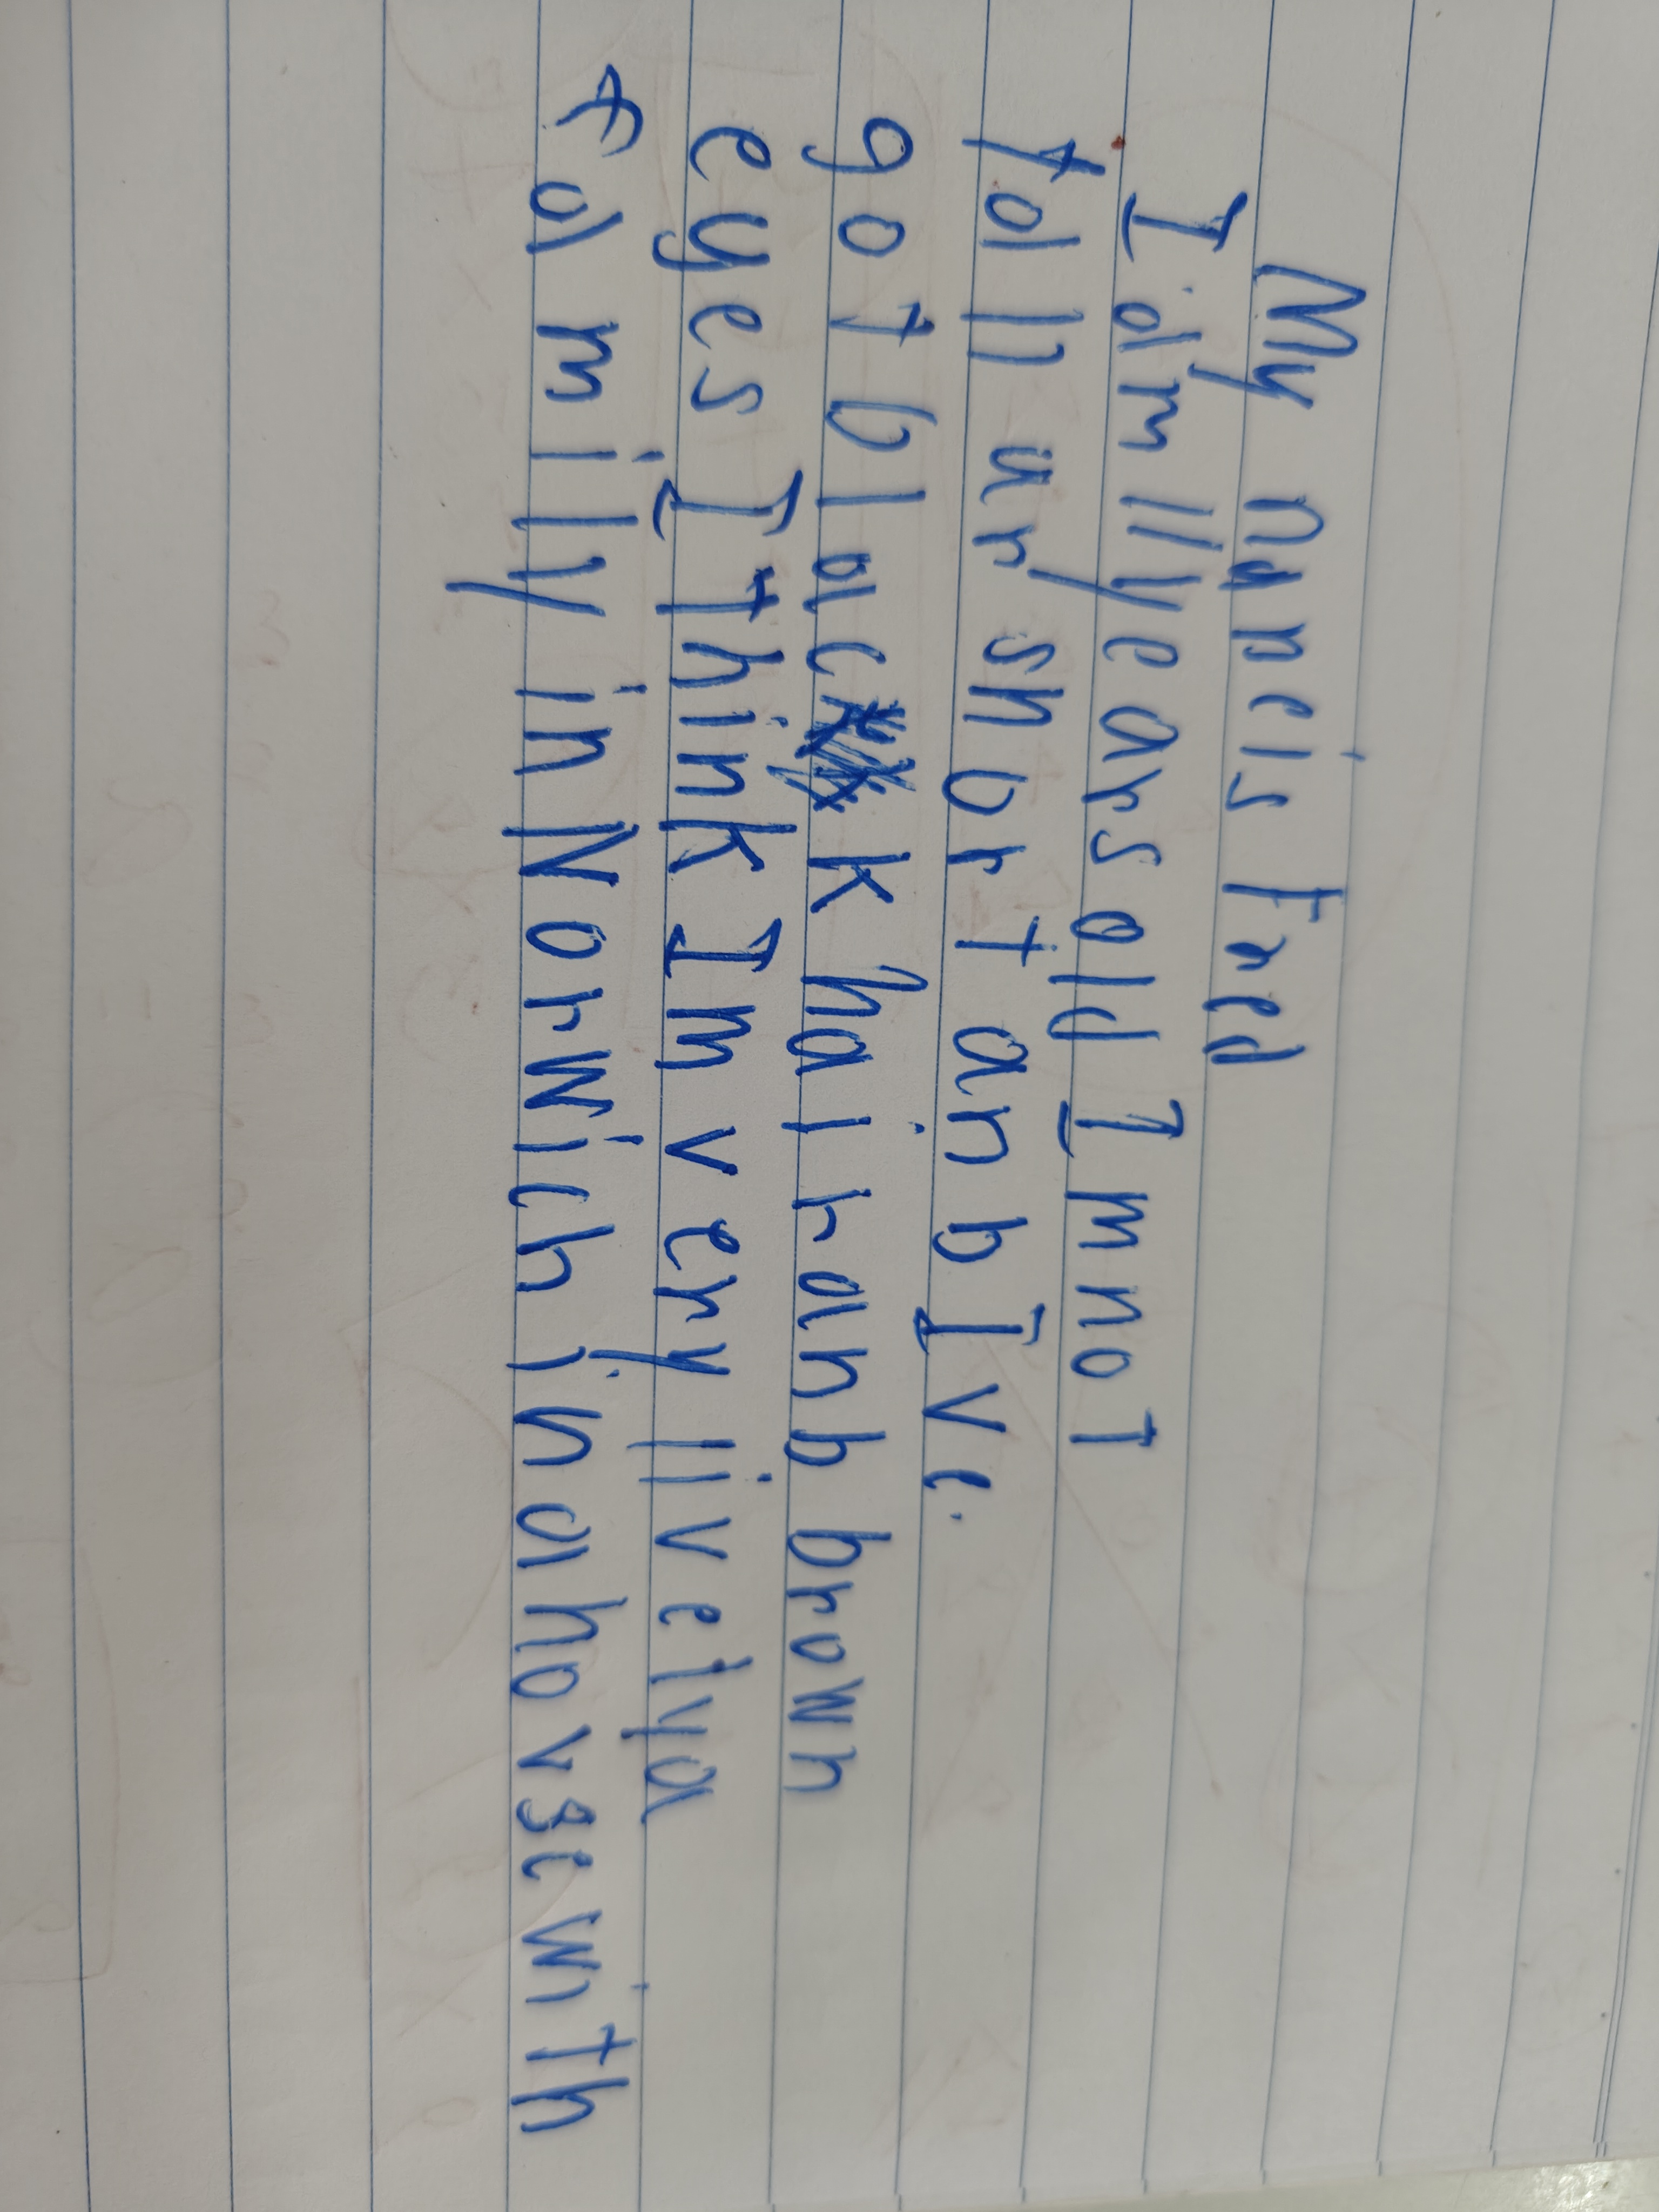 My nape is Fred
I am 11 years old I m not
tall ury short anb I ve.
got black k hair anb brown
eyes I think I m very lively a
family in Norwich in a hovse with